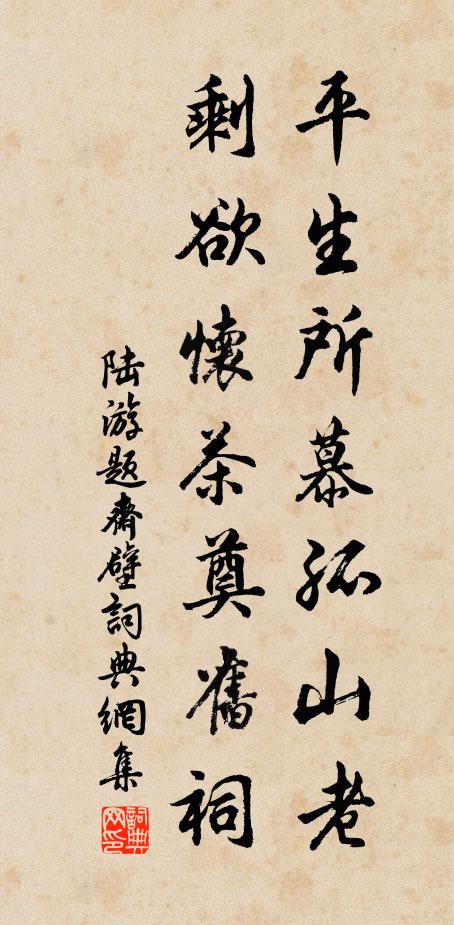 平生所慕孤山老
剩欲懷茶奠舊祠
陸游題齋壁詞典網集
詞典網印